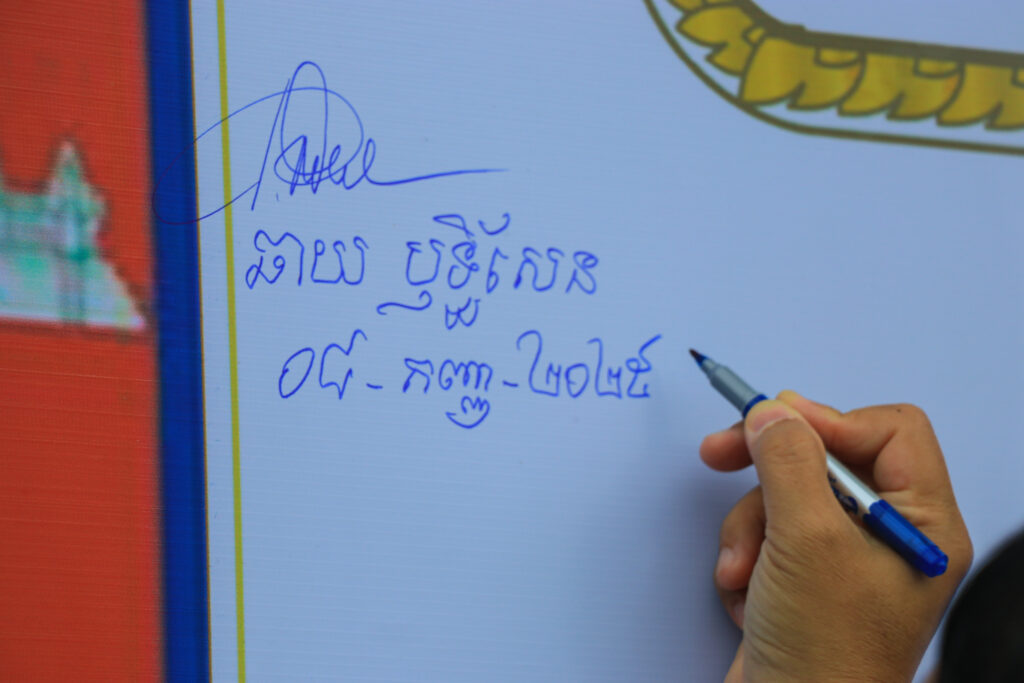 ឆាយ ឫទ្ធិសែន
០៨ - កញ្ញា - ២០២៥